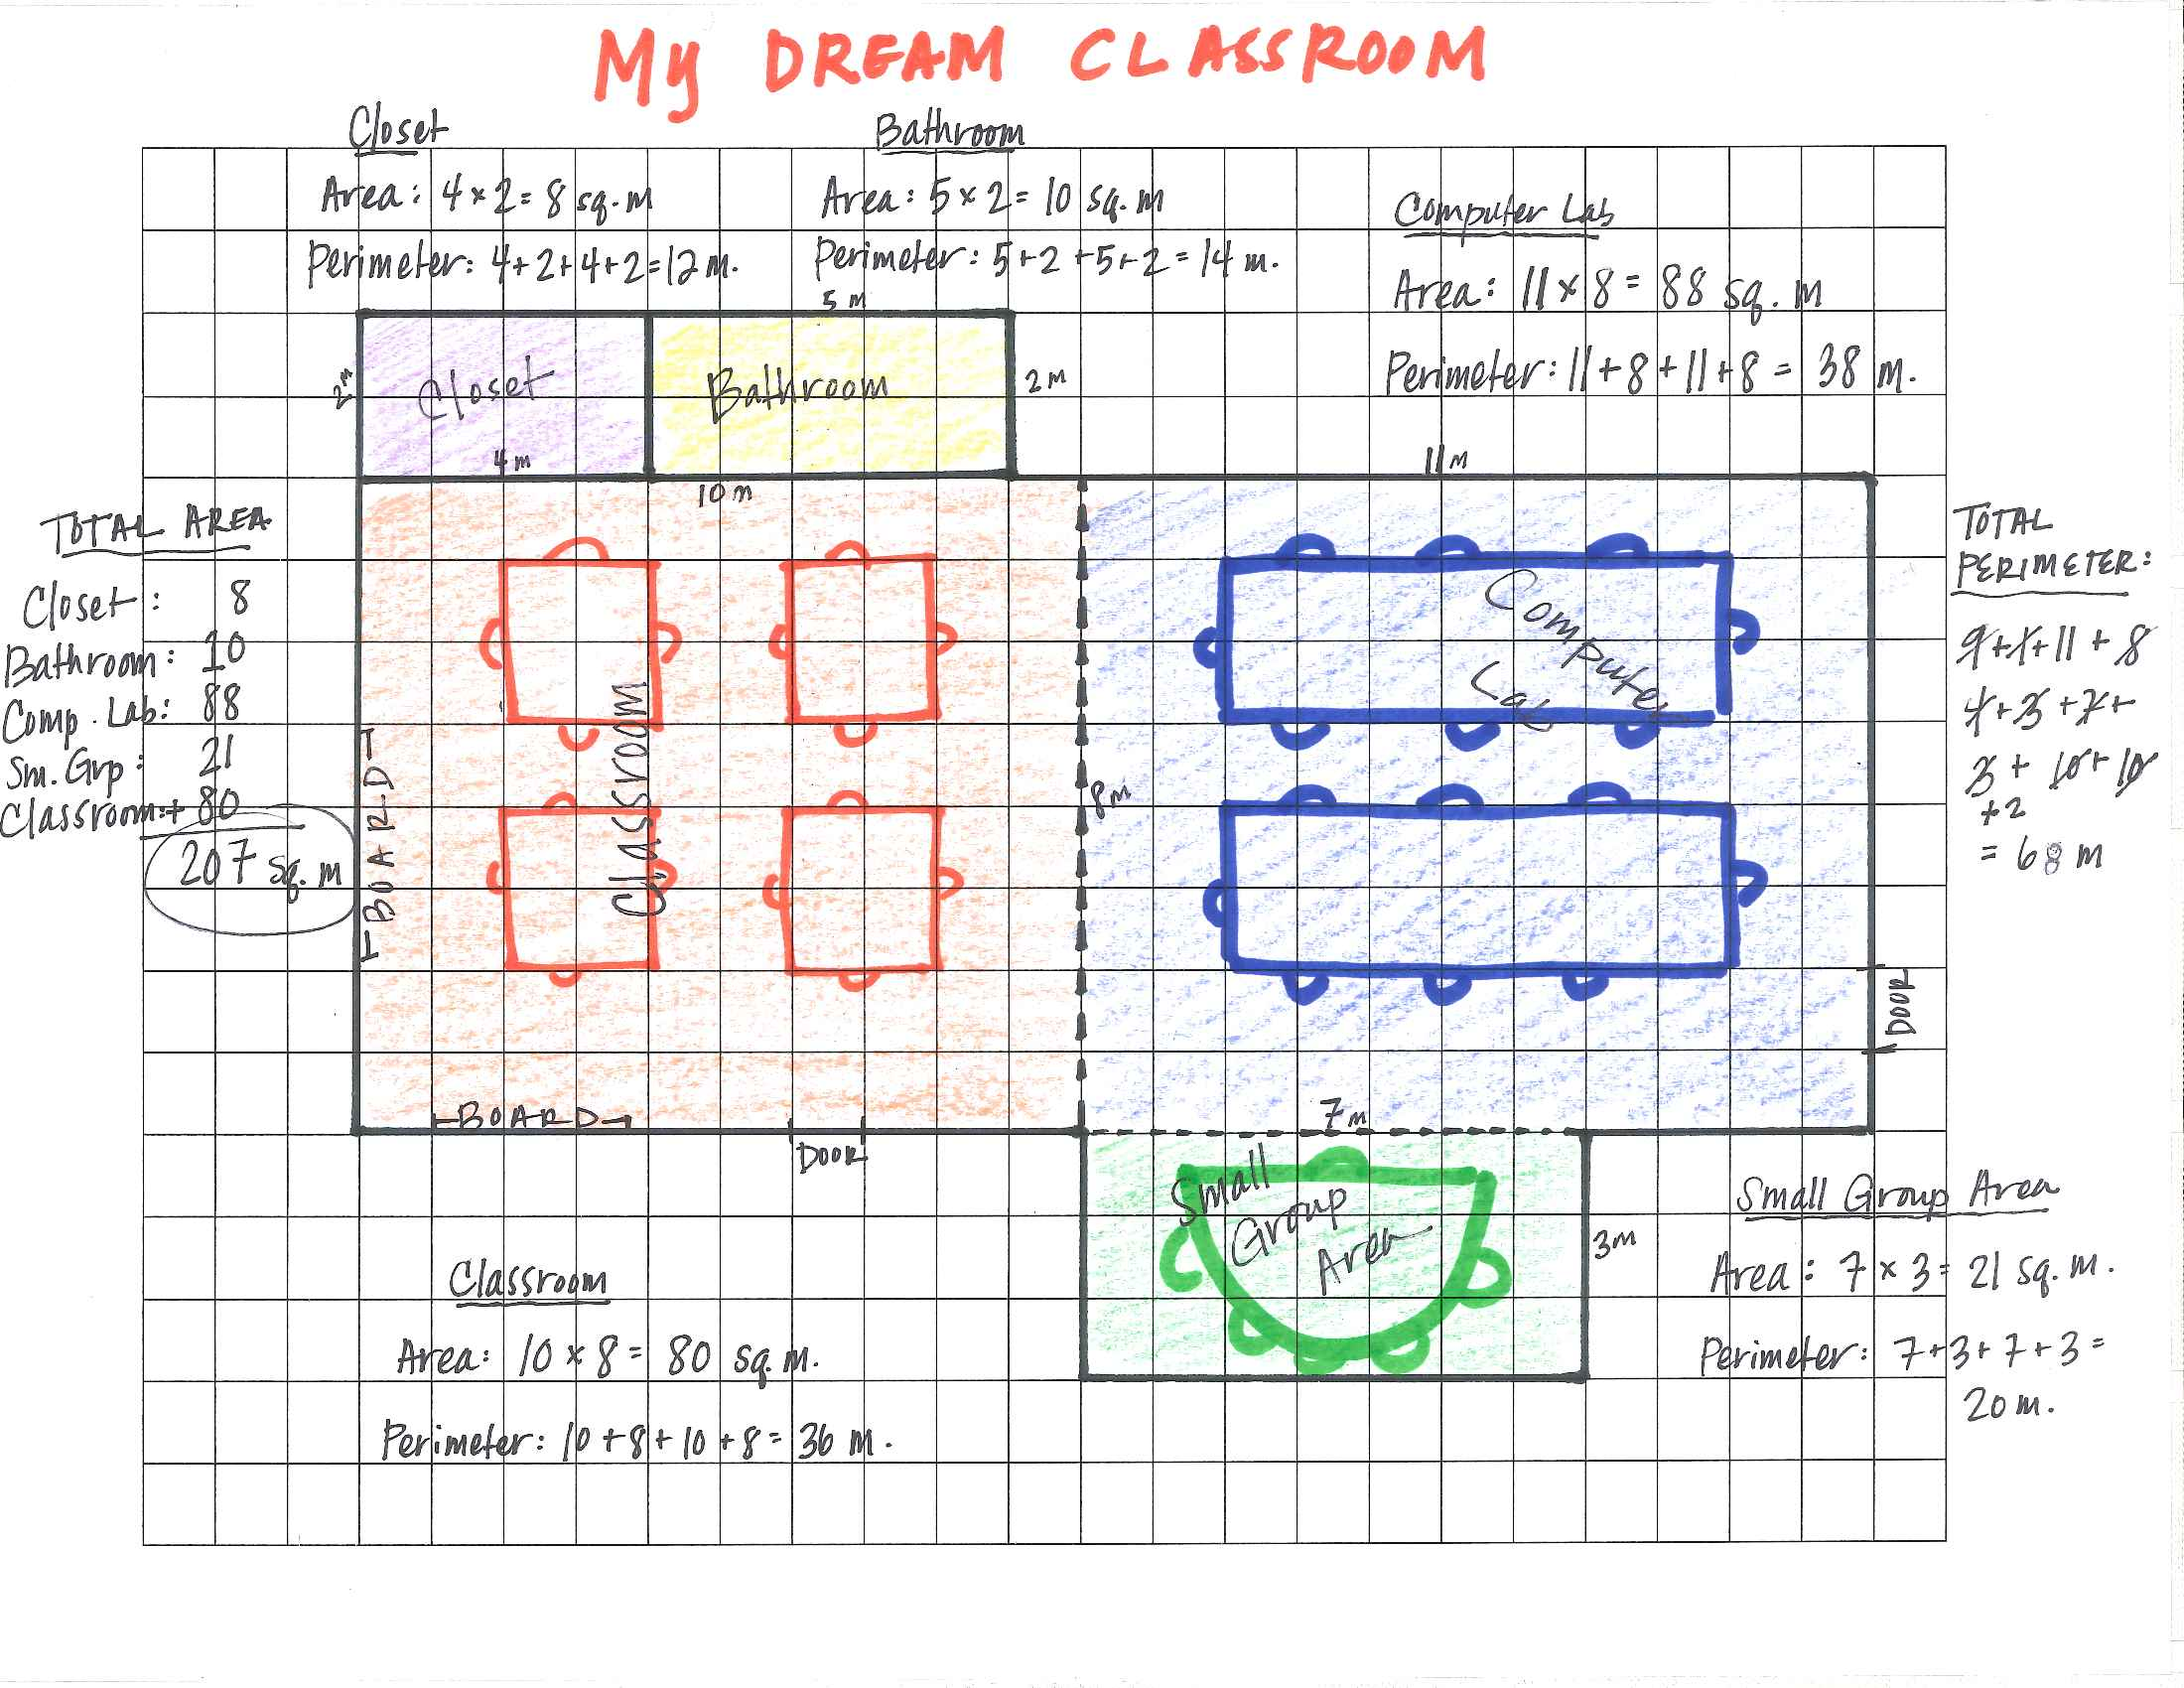 My DREAM CLASSROOM
Closet
Area: 4 x 2 = 8 sq. m
Perimeter: 4+2+4+2=12 m.
Bathroom
Area: 5 x 2 = 10 sq. m
Perimeter: 5+2+5+2=14 m.
Computer Lab
Area: 11 x 8 = 88 sq. m
Perimeter: 11+8+11+8 = 38 m.
5 m
2 m
Closet
4 m
Bathroom
2 m
10 m
11 m
TOTAL AREA
Closet: 8
Bathroom: 10
Comp. Lab: 88
Sm. Grp: 21
Classroom: + 80
207 sq. m
BOARD
Classroom
8 m
Computer
Lab
TOTAL
PERIMETER:
9+1+11+8
4+3+7+
3+10+10
+2
= 68 m
DOOR
BOARD
DOOR
7 m
Small
Group
Area
3 m
Small Group Area
Area: 7 x 3 = 21 sq. m.
Perimeter: 7+3+7+3=
20 m.
Classroom
Area: 10 x 8 = 80 sq. m.
Perimeter: 10+8+10+8= 36 m.